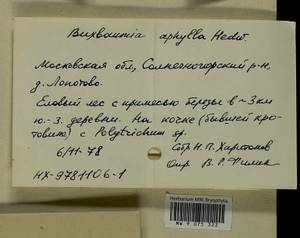 Buxbaumia aphylla Hedw.
Московская обл., Солнечногорский р-н,
д. Лопотово.
Еловый лес с примесью березы в ~ 3 км
ю.-з. деревни. На кочке (бывшей кро-
товине) с Polytrichum sp.
6/11-78
Сбр. Н.П. Харитонов
Опр. В.Р. Филин
НХ-9781106-1
Herbarium MW, Bryophyta
MW 9 075 322